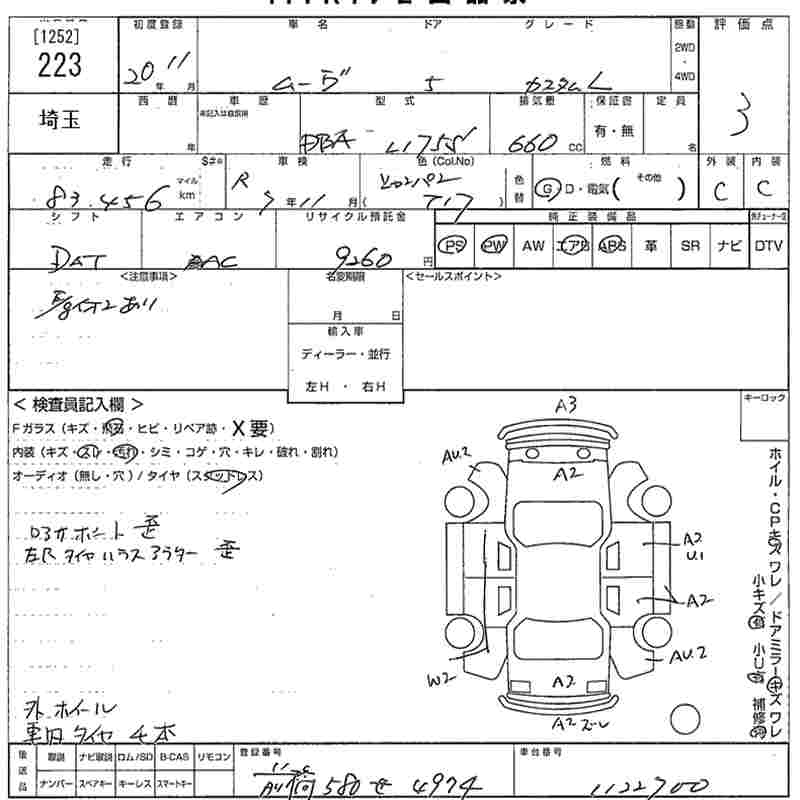 [1252]
223
埼玉
初度登録 車名 ドア グレード 駆動 評価点
20年 11月 ムーヴ 5 カスタムL 2WD・4WD 3
西暦 車歴 型式 排気量 保証書 定員
年 DBA L175S 660cc 有・無 名
走行 S#※ 車検 色(Col.No) 燃料 外装 内装
83,456 マイル km R 7年11月 T17 色替 G・D・電気( その他 ) C C
シフト エアコン リサイクル預託金 純正装備品
DAT AAC 9260円 PS PW AW エアB ABS 革 SR ナビ DTV
<注意事項> 名変期限 <セールスポイント>
月 日
輸入車
ディーラー・並行
左H ・ 右H
キーロック
<検査員記入欄>
Fガラス(キズ・飛石・ヒビ・リペア跡・X要)
内装(キズ・スレ・汚れ・シミ・コゲ・穴・キレ・破れ・割れ)
オーディオ(無し・穴)/タイヤ(スタッドレス)
A3
AU.2
A2
A2
U.1
A2
AU.2
W2
A2
A2ズレ
ホイル・CPキズ ワレ/ドアミラーキズ ワレ
小キズ有 小U有 補修有
外 ホイール
車内 タイヤ 4本
後送品 取説 ナビ取説 ロム/SD B-CAS リモコン 登録番号 車台番号
ナンバー スペアキー キーレス スマートキー 580 せ 4974 1122700